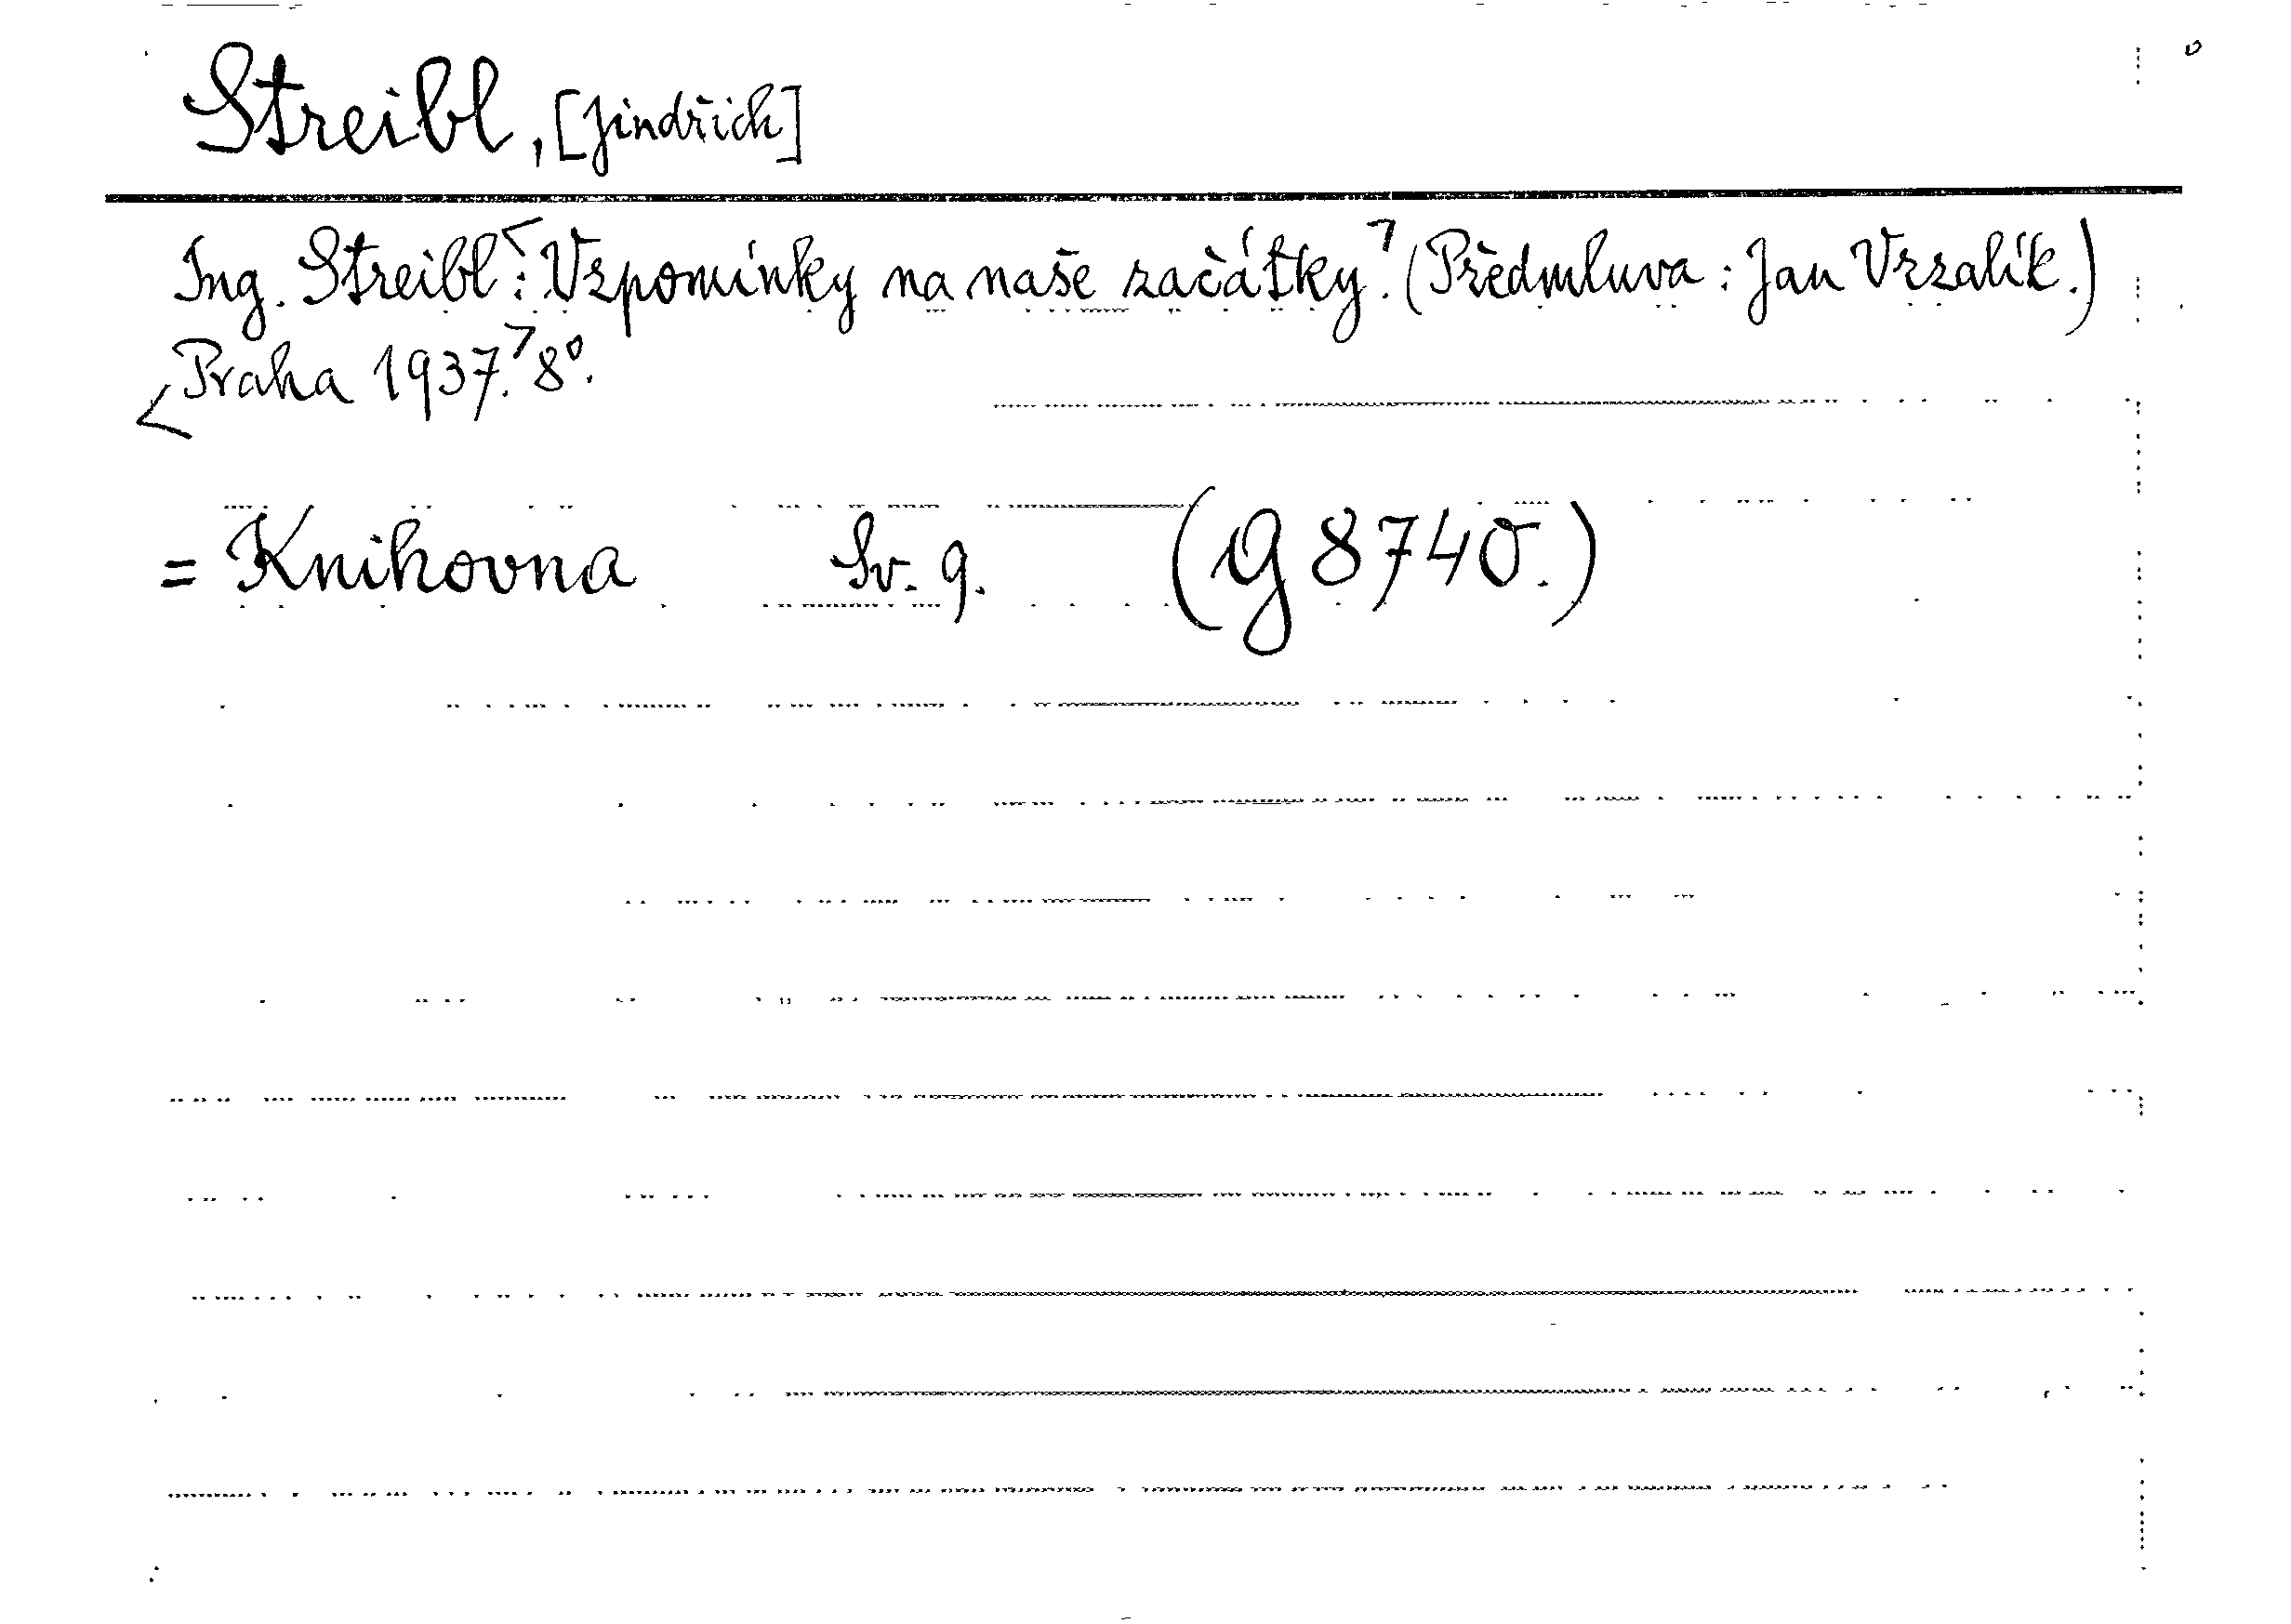 Streibl, [Jindřich]
Ing. Streibl: Vzpomínky na naše začátky. (Předmluva: Jan Vrzalík.)
Praha 1937. 8°.
= Knihovna Sv. 9. (G 8740.)